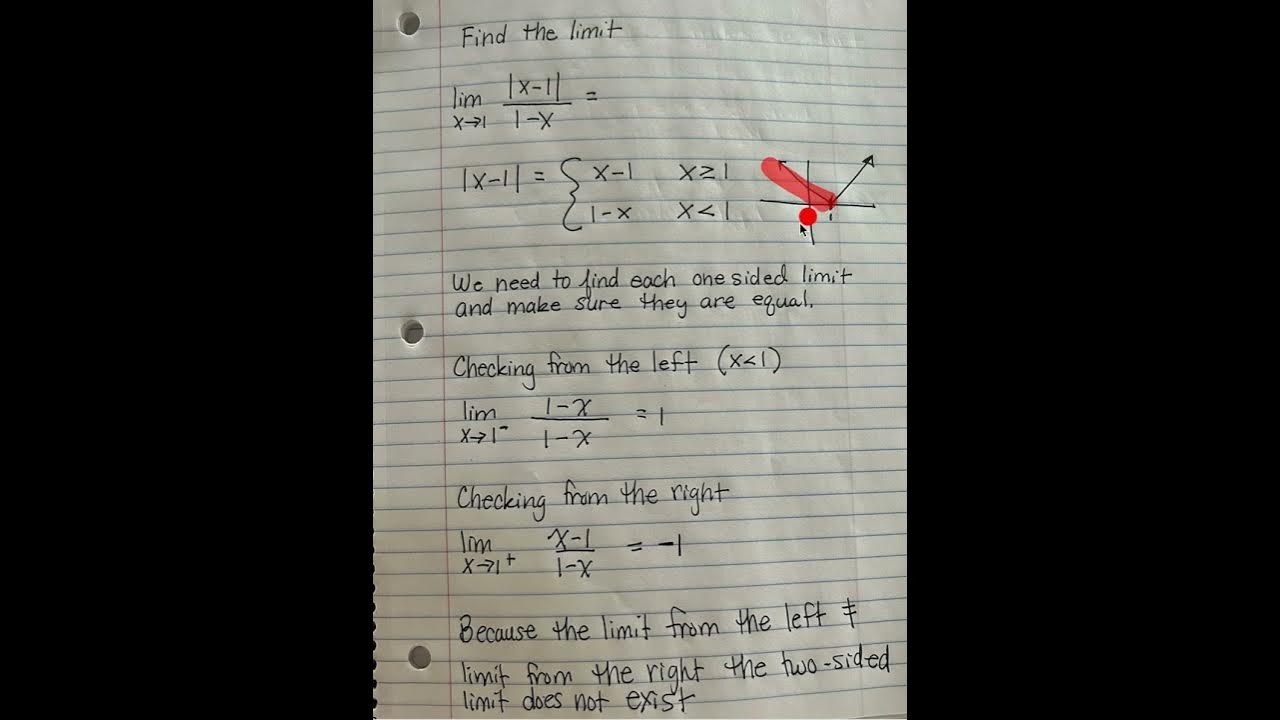 Find the limit
lim x→1 |x-1| / 1-x =
|x-1| = { x-1 x≥1
1-x x<1
1
We need to find each one sided limit
and make sure they are equal.
Checking from the left (x<1)
lim x→1⁻ 1-x / 1-x = 1
Checking from the right
lim x→1⁺ x-1 / 1-x = -1
Because the limit from the left ≠
limit from the right the two-sided
limit does not exist